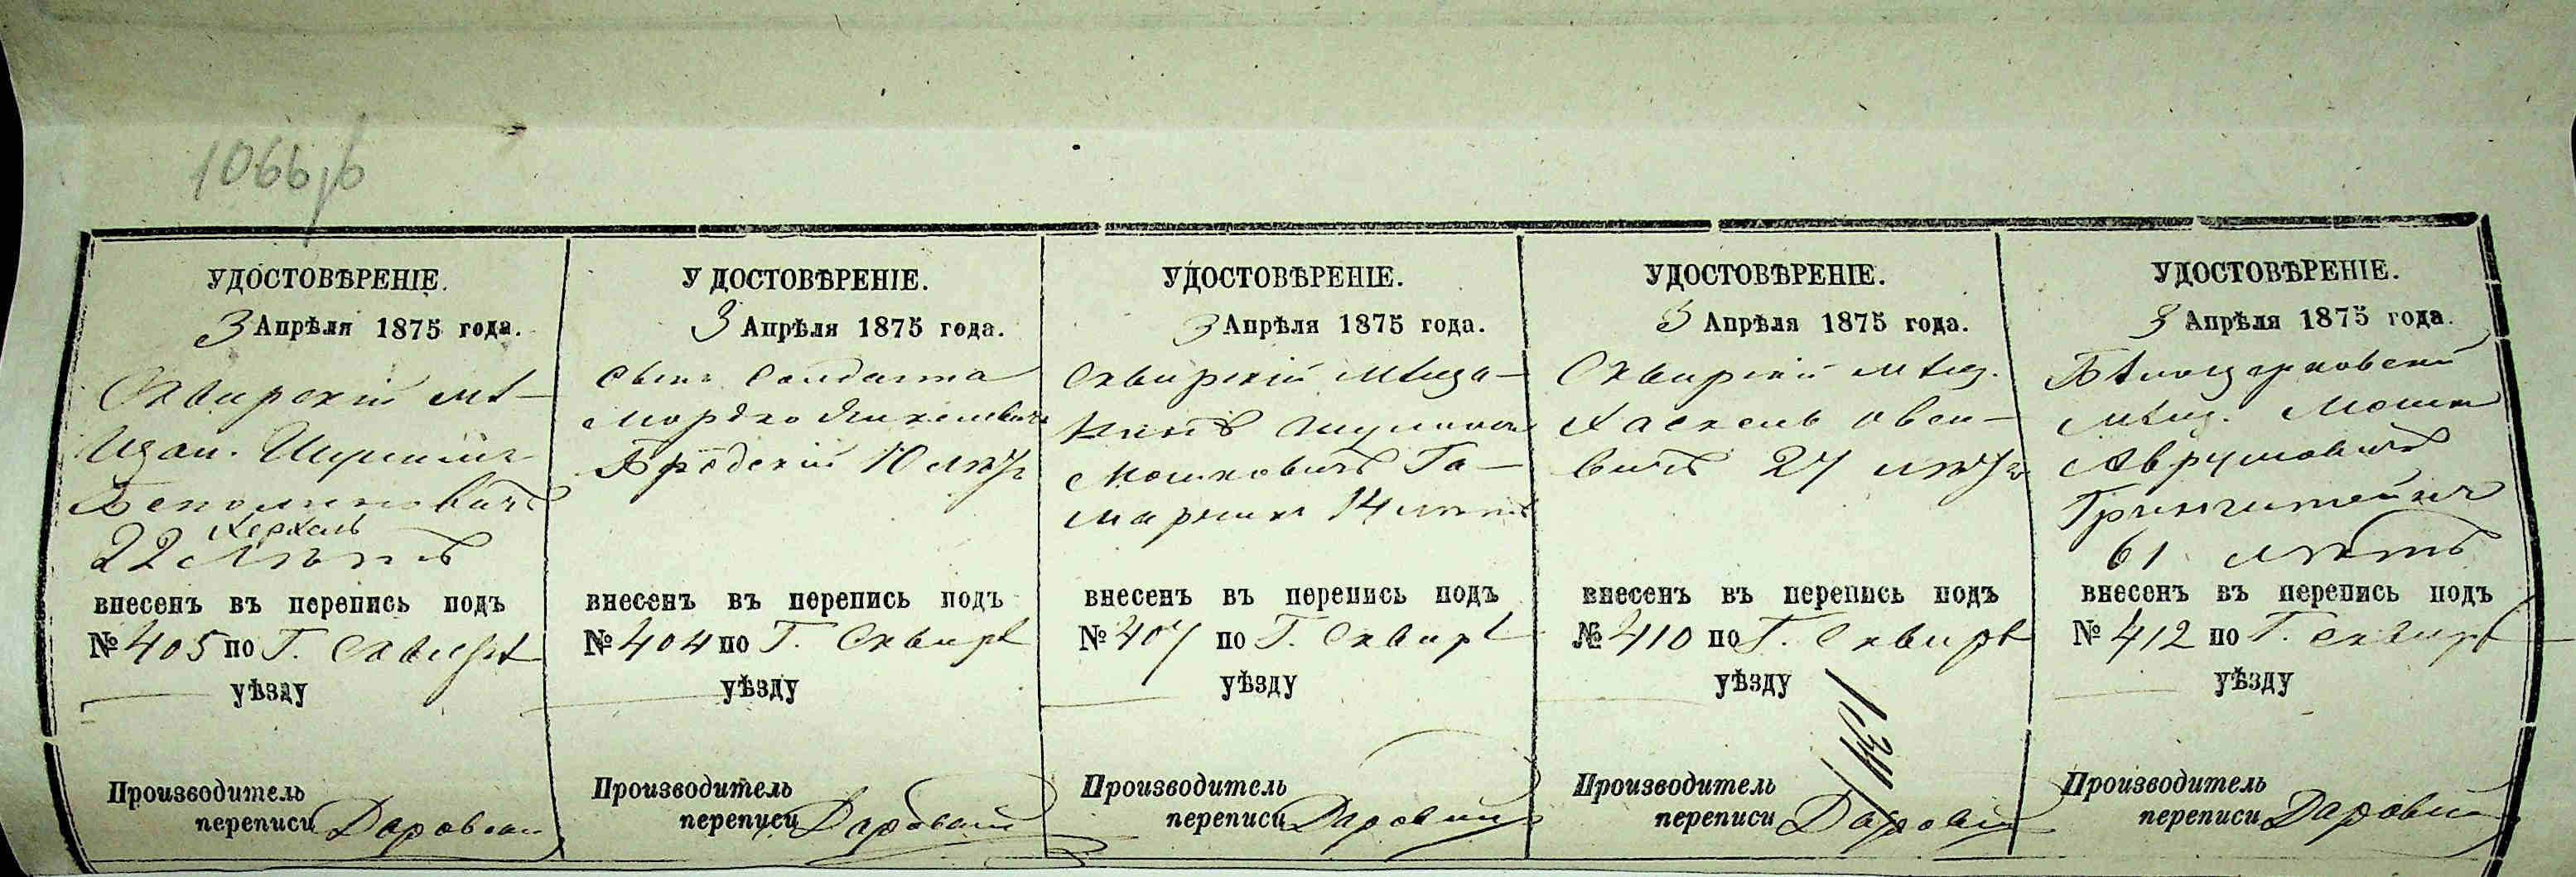 УДОСТОВѢРЕНІЕ.
3 Апрѣля 1875 года.
Сквирскій мѣ-
щан.
22 Лѣтъ
внесенъ въ перепись подъ
№ 405 по Г. Сквирѣ
уѣзду
Производитель
переписи Даровскій
УДОСТОВѢРЕНІЕ.
3 Апрѣля 1875 года.
Сынъ Солдата
Мордко
Бродскій 10 лѣтъ
внесенъ въ перепись подъ
№ 404 по Г. Сквирѣ
уѣзду
Производитель
переписи Даровскій
УДОСТОВѢРЕНІЕ.
3 Апрѣля 1875 года.
Сквирскій мѣща-
нинъ
Мошковичъ Га-
14 лѣтъ
внесенъ въ перепись подъ
№ 407 по Г. Сквирѣ
уѣзду
Производитель
переписи Даровскій
УДОСТОВѢРЕНІЕ.
3 Апрѣля 1875 года.
Сквирскій мѣщ.
Хаскель
27 лѣтъ
внесенъ въ перепись подъ
№ 410 по Г. Сквирѣ
уѣзду
Производитель
переписи Даровскій
УДОСТОВѢРЕНІЕ.
3 Апрѣля 1875 года.
Бѣлоцерковскій
мѣщ. Мошко
Аврумовичъ
Гринштейнъ
61 лѣтъ
внесенъ въ перепись подъ
№ 412 по Г. Сквирѣ
уѣзду
Производитель
переписи Даровскій